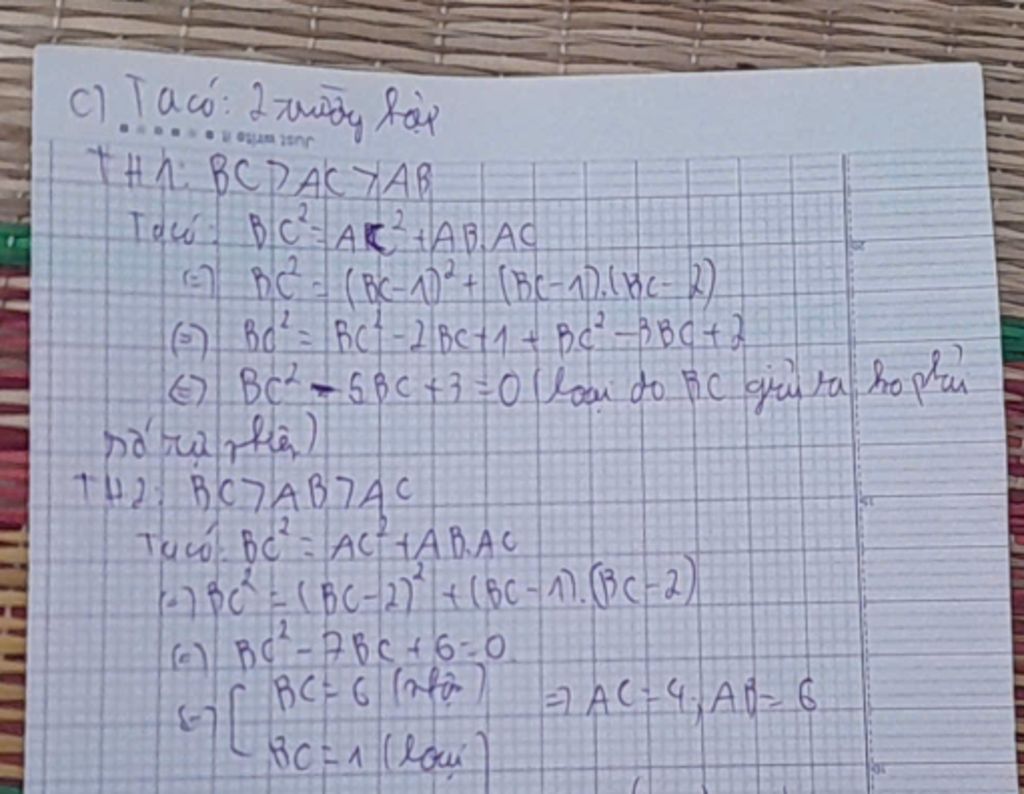 c) Ta có: 2 trường hợp
TH1: BC > AC > AB
Ta có: BC² = AC² + AB.AC
(=) BC² = (BC-1)² + (BC-1).(BC-2)
(=) BC² = BC² - 2BC + 1 + BC² - 3BC + 2
(=) BC² - 5BC + 3 = 0 (loại do BC giải ra ko phải
số tự nhiên)
TH2: BC > AB > AC
Ta có: BC² = AC² + AB.AC
(=) BC² = (BC-2)² + (BC-1).(BC-2)
(=) BC² - 7BC + 6 = 0
(=) [ BC = 6 (nhận) => AC = 4; AB = 6
BC = 1 (loại)